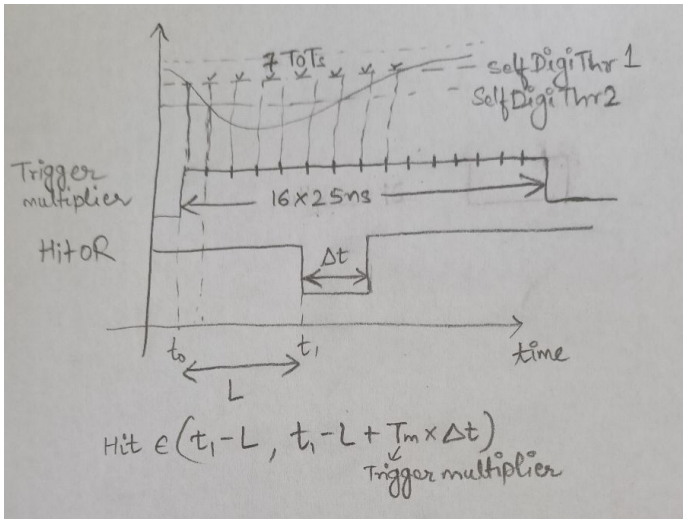 7 ToTs
SelfDigiThr 1
SelfDigiThr2
Trigger
multiplier
16x25ns
HitOR
Δt
t₀
t₁
time
L
Hit ∈ (t₁-L, t₁-L + Tm x Δt)
Trigger multiplier